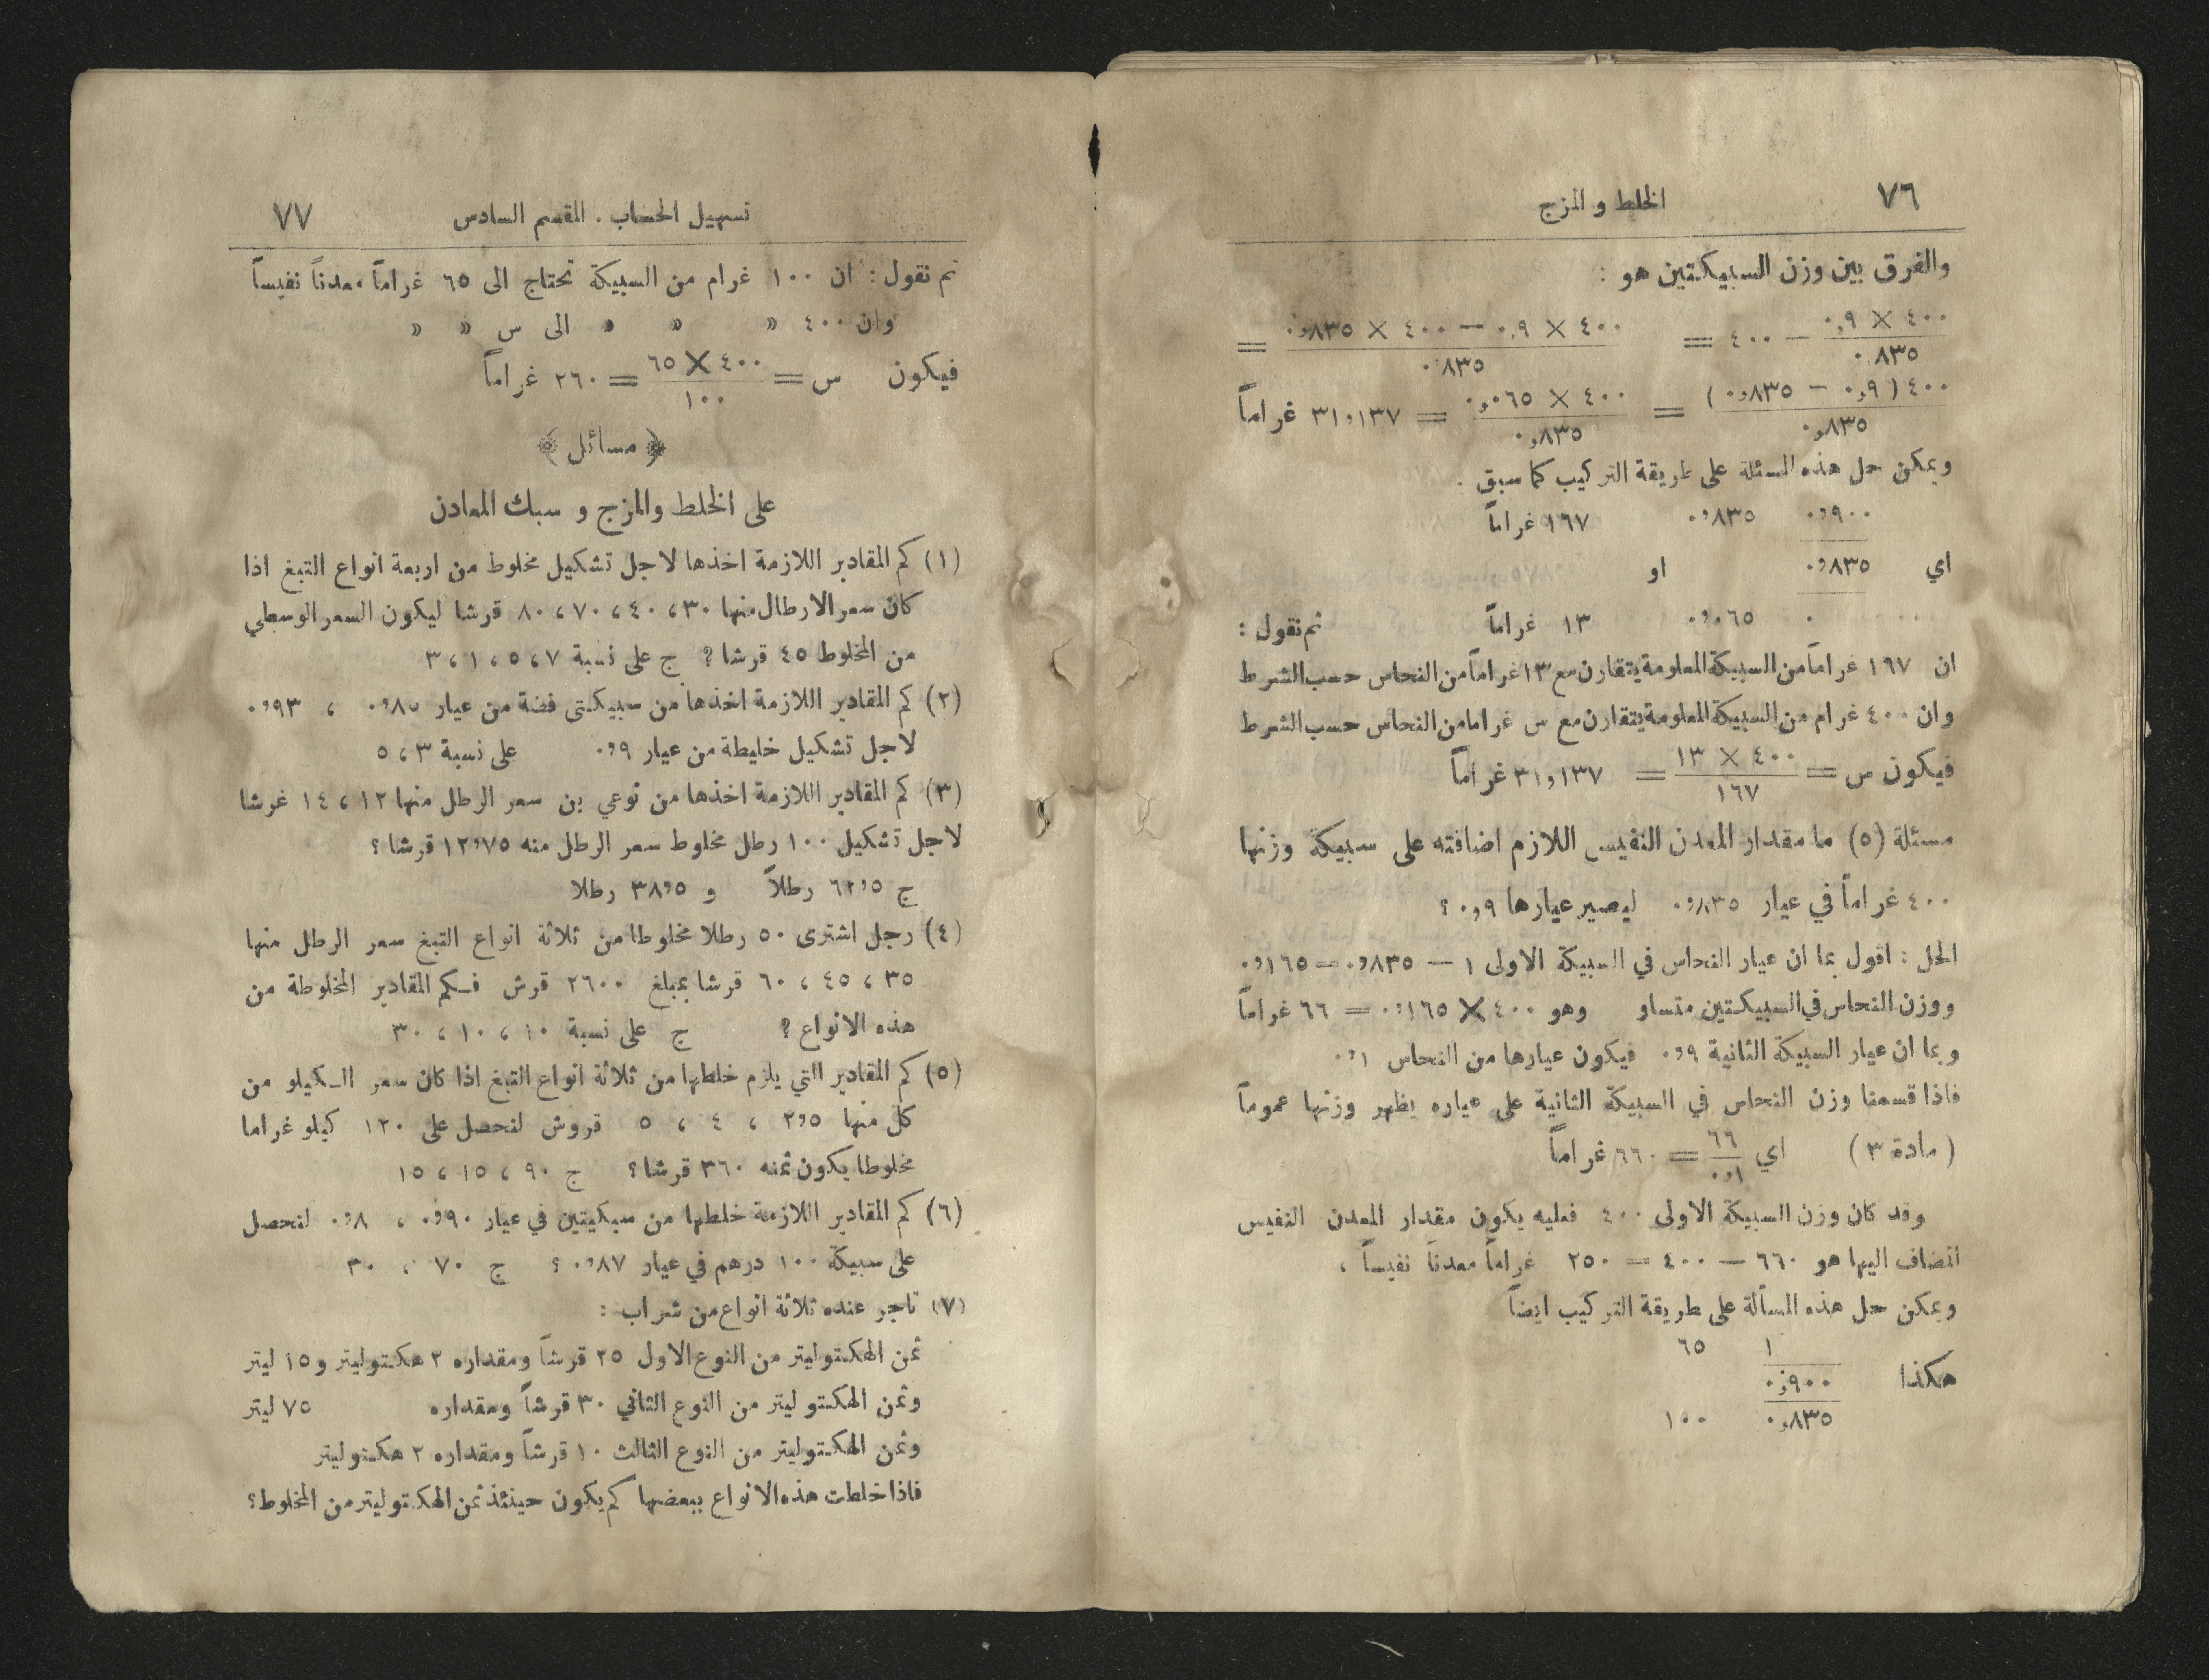 ٧٦ الخلط و المزج
والفرق بين وزن السبيكتين هو :
٤٠٠ × ٠٫٩ / ٠٫٨٣٥ — ٤٠٠ = ٤٠٠ × ٠٫٩ — ٤٠٠ × ٠٫٨٣٥ / ٠٫٨٣٥ =
٤٠٠ (٠٫٩ — ٠٫٨٣٥) / ٠٫٨٣٥ = ٤٠٠ × ٠٫٠٦٥ / ٠٫٨٣٥ = ٣١٫١٣٧ غراماً
ويمكن حل هذه المسئلة على طريقة التركيب كما سبق .
٠٫٩٠٠ ٠٫٨٣٥ ١٦٧ غراماً
اي ٠٫٨٣٥ او
٠ ٠٫٠٦٥ ١٣ غراماً ثم نقول :
ان ١٦٧ غراماً من السبيكة المعلومة يتقارن مع ١٣ غراماً من النحاس حسب الشرط
وان ٤٠٠ غرام من السبيكة المعلومة يتقارن مع س غراما من النحاس حسب الشرط
فيكون س = ٤٠٠ × ١٣ / ١٦٧ = ٣١٫١٣٧ غراماً
مسئلة (٥) ما مقدار المعدن النفيس اللازم اضافته على سبيكة وزنها
٤٠٠ غراماً في عيار ٠٫٨٣٥ ليصير عيارها ٠٫٩ ؟
الحل : اقول بما ان عيار النحاس في السبيكة الاولى ١ — ٠٫٨٣٥ = ٠٫١٦٥
ووزن النحاس في السبيكتين متساو وهو ٤٠٠ × ٠٫١٦٥ = ٦٦ غراماً
وبما ان عيار السبيكة الثانية ٠٫٩ فيكون عيارها من النحاس ٠٫١
فاذا قسمنا وزن النحاس في السبيكة الثانية على عياره يظهر وزنها عموماً
( مادة ٣ ) اي ٦٦ / ٠٫١ = ٦٦٠ غراماً
وقد كان وزن السبيكة الاولى ٤٠٠ فعليه يكون مقدار المعدن النفيس
المضاف اليها هو ٦٦٠ — ٤٠٠ = ٢٥٠ غراماً معدناً نفيساً ،
ويمكن حل هذه المسألة على طريقة التركيب ايضاً
١ ٦٥
هكذا ٠٫٩٠٠
٠٫٨٣٥ ١٠٠
تسهيل الحساب . القسم السادس ٧٧
ثم نقول : ان ١٠٠ غرام من السبيكة تحتاج الى ٦٥ غراماً معدناً نفيساً
وان ٤٠٠ » » » الى س » »
فيكون س = ٤٠٠ × ٦٥ / ١٠٠ = ٢٦٠ غراماً
﴿ مسائل ﴾
على الخلط والمزج و سبك المعادن
(١) كم المقادير اللازمة اخذها لاجل تشكيل مخلوط من اربعة انواع التبغ اذا
كان سعر الارطال منها ٣٠ ، ٤٠ ، ٧٠ ، ٨٠ قرشا ليكون السعر الوسطي
من المخلوط ٤٥ قرشا ؟ ج على نسبة ٧ ، ٥ ، ١ ، ٣
(٢) كم المقادير اللازمة اخذها من سبيكتى فضة من عيار ٠٫٨٥ ، ٠٫٩٣
لاجل تشكيل خليطة من عيار ٠٫٩ على نسبة ٣ ، ٥
(٣) كم المقادير اللازمة اخذها من نوعي بن سعر الرطل منها ١٢ ، ١٤ غرشا
لاجل تشكيل ١٠٠ رطل مخلوط سعر الرطل منه ١٢٫٧٥ قرشا ؟
ج ٦٢٫٥ رطلاً و ٣٨٫٥ رطلا
(٤) رجل اشترى ٥٠ رطلا مخلوطا من ثلاثة انواع التبغ سعر الرطل منها
٣٥ ، ٤٥ ، ٦٠ قرشا بمبلغ ٢٦٠٠ قرش فكم المقادير المخلوطة من
هذه الانواع ؟ ج على نسبة ١٠ ، ١٠ ، ٣٠
(٥) كم المقادير التي يلزم خلطها من ثلاثة انواع التبغ اذا كان سعر الكيلو من
كل منها ٢٫٥ ، ٤ ، ٥ قروش لنحصل على ١٢٠ كيلو غراما
مخلوطا يكون ثمنه ٣٦٠ قرشا ؟ ج ٩٠ ، ١٥ ، ١٥
(٦) كم المقادير اللازمة خلطها من سبيكتين في عيار ٠٫٩٠ ، ٠٫٨ لنحصل
على سبيكة ١٠٠ درهم في عيار ٠٫٨٧ ؟ ج ٧٠ ، ٣٠
(٧) تاجر عنده ثلاثة انواع من شراب :
ثمن الهكتوليتر من النوع الاول ٢٥ قرشاً ومقداره ٢ هكتوليتر و ١٥ ليتر
وثمن الهكتو ليتر من النوع الثاني ٣٠ قرشاً ومقداره ٧٥ ليتر
وثمن الهكتوليتر من النوع الثالث ١٠ قرشاً ومقداره ٢ هكتوليتر
فاذا خلطت هذه الانواع ببعضها كم يكون حينئذ ثمن الهكتوليتر من المخلوط ؟